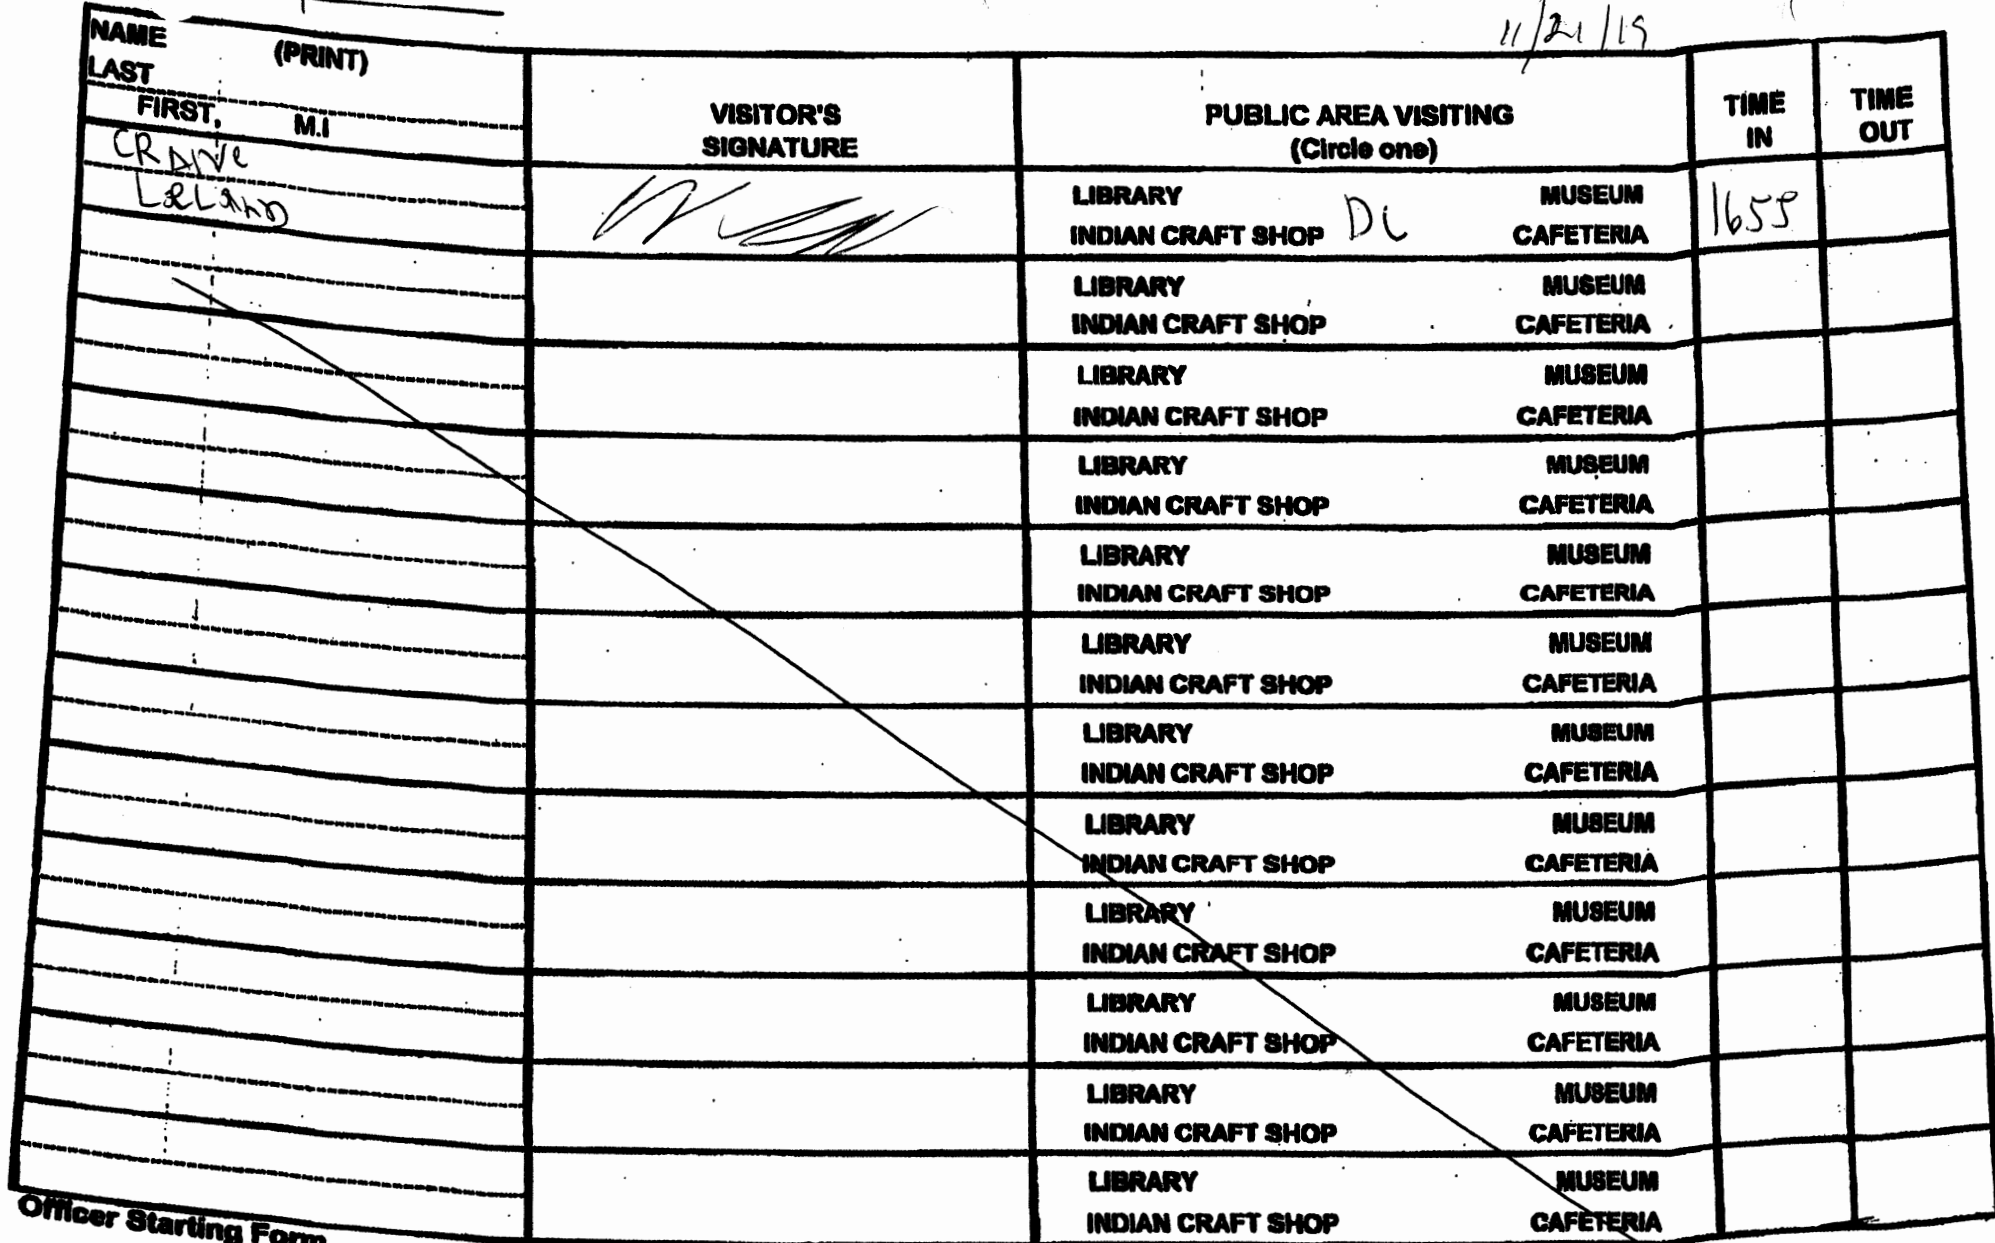 11/21/19
NAME (PRINT)
LAST
FIRST, M.I
VISITOR'S
SIGNATURE
PUBLIC AREA VISITING
(Circle one)
TIME
IN
TIME
OUT
CRANE
LELAND
LIBRARY MUSEUM
INDIAN CRAFT SHOP CAFETERIA
1655
LIBRARY MUSEUM
INDIAN CRAFT SHOP CAFETERIA
LIBRARY MUSEUM
INDIAN CRAFT SHOP CAFETERIA
LIBRARY MUSEUM
INDIAN CRAFT SHOP CAFETERIA
LIBRARY MUSEUM
INDIAN CRAFT SHOP CAFETERIA
LIBRARY MUSEUM
INDIAN CRAFT SHOP CAFETERIA
LIBRARY MUSEUM
INDIAN CRAFT SHOP CAFETERIA
LIBRARY MUSEUM
INDIAN CRAFT SHOP CAFETERIA
LIBRARY MUSEUM
INDIAN CRAFT SHOP CAFETERIA
LIBRARY MUSEUM
INDIAN CRAFT SHOP CAFETERIA
LIBRARY MUSEUM
INDIAN CRAFT SHOP CAFETERIA
LIBRARY MUSEUM
INDIAN CRAFT SHOP CAFETERIA
Officer Starting Form